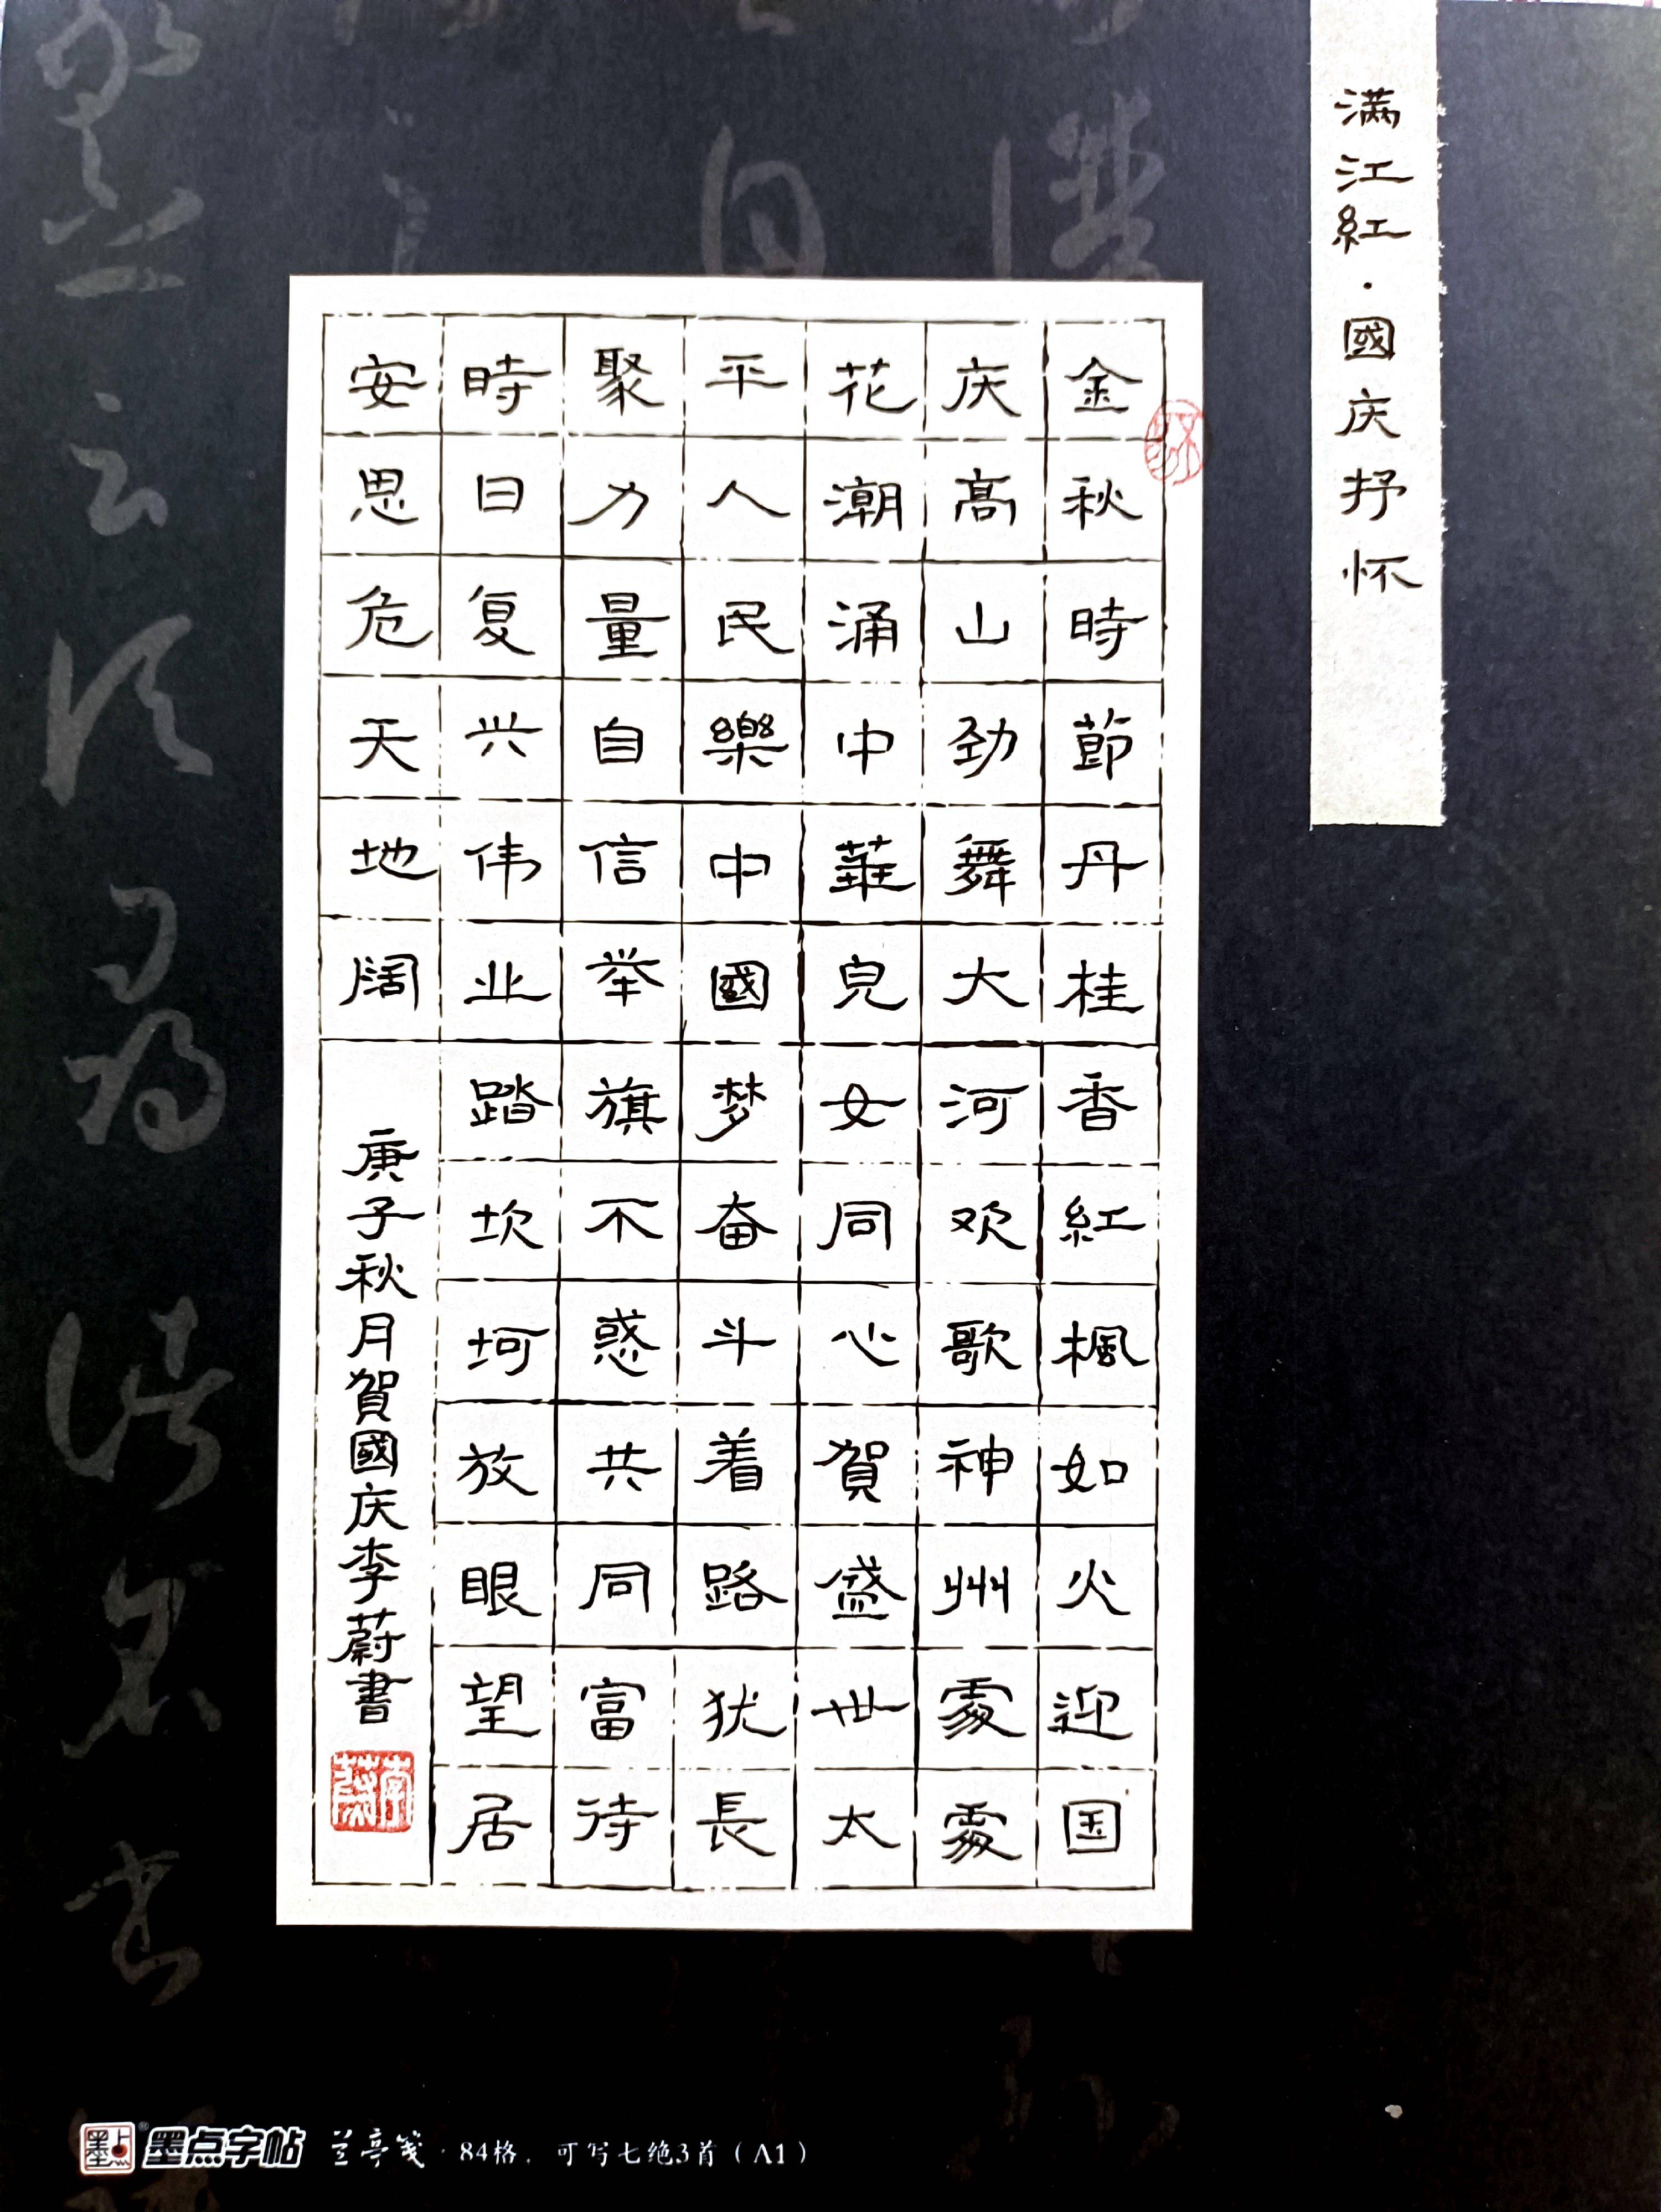 满江紅·國庆抒怀
金秋時節丹桂香紅楓如火迎国
庆高山劲舞大河欢歌神州處處
花潮涌中華皃女同心賀盛世太
平人民樂中國梦奋斗着路犹長
聚力量自信举旗不惑共同富待
時日复兴伟业踏坎坷放眼望居
安思危天地阔
庚子秋月賀國庆李蔚書
墨点字帖 兰亭笺·84格，可写七绝3首（A1）